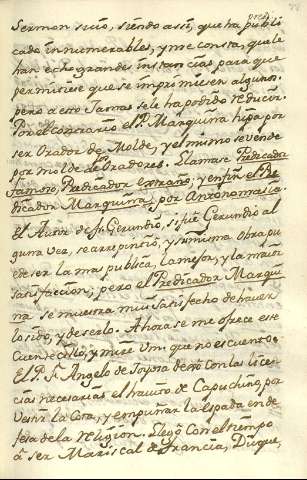 Sermon suio, siendo assi, que ha predi
cado innumerables, y me consta, que le
han echo grandes instancias para que
permitiese que se imprimiesen algunos.
pero a esto Jamas se le ha podido reducir.
Por el contrario el P. Marquina hipa por
ser Orador de Molde, y el mismo se vende
por molde de Oradores. Llamase Predicador
famoso, Predicador extraño, y en fin el Pre
dicador Marquina, por Antonomasia.
El Autor de fr. Gerundio, si fue Gerundio al
guna vez, se arrepintio, y su misma Obra pu
ede ser la mas publica, la mejor, y la maior
satisfaccion; pero el Predicador Marqui
na se muestra mui satisfecho de haver
lo sido, y de serlo. Ahora se me ofrece este
Cuentecillo, y mire Vm. que no es cuento.
El P. Fr. Angelo de Joyosa dexò con las licen
cias necesarias el havito de Capuchino, por
Vestir la Cota, y empuñar la espada en de
fensa de la religion. Llegò con el tiempo
à ser Mariscal de Francia, Duque,